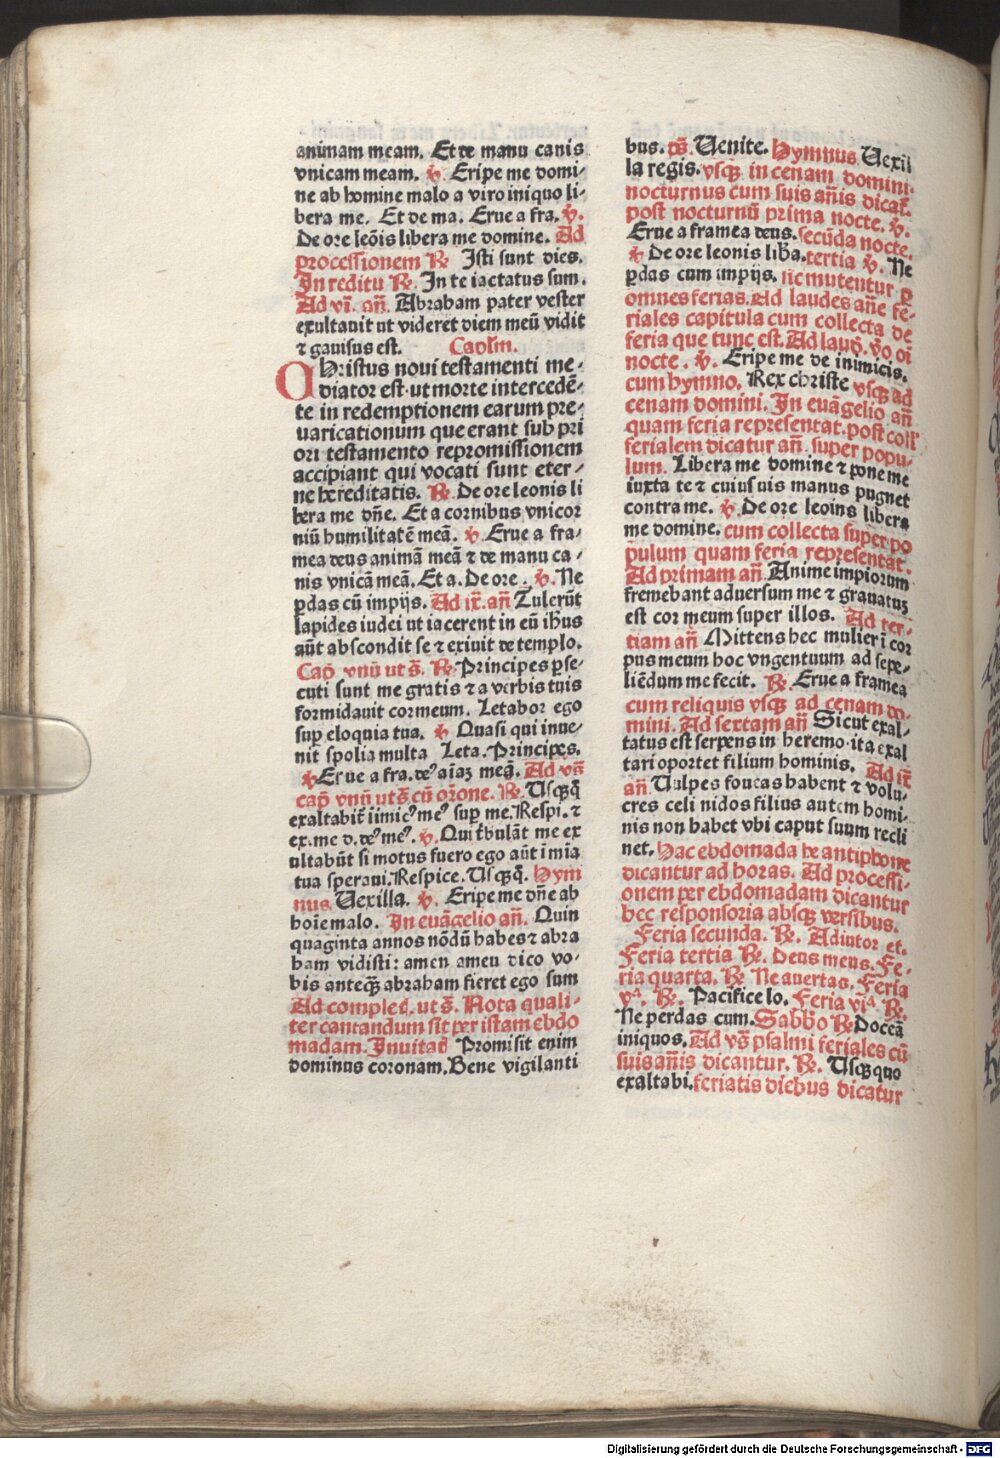 animam meam. Et de manu canis
vnicam meam. ℣. Eripe me domi⸗
ne ab homine malo a viro iniquo li⸗
bera me. Et de ma. Erue a fra. ℣.
De ore leōis libera me domine. Ad
processionem ℟ Isti sunt dies.
In reditu ℟. In te iactatus sum.
Ad vī. añ. Abraham pater vester
exultauit ut videret diem meū vidit
⁊ gauisus est. Caplm.
Christus noui testamenti me⸗
diator est· ut morte intercedē⸗
te in redemptionem earum pre⸗
uaricationum que erant sub pri
ori testamento repromissionem
accipiant qui vocati sunt eter⸗
ne hereditatis. ℟. De ore leonis li
bera me dñe. Et a cornibus vnicor
niū humilitatē meā. ℣ Erue a fra⸗
mea deus animā meā ⁊ de manu ca⸗
nis vnicā meā. Et a. De ore. ℣. Ne
p̱das cū impijs. Ad ix̄. añ Tulerūt
lapides iudei ut iacerent in eū ihūs
aūt abscondit se ⁊ exiuit de templo.
Cap̄ vnū ut s̄. ℟. Principes p̱se⸗
cuti sunt me gratis ⁊ a verbis tuis
formidauit cor meum. Letabor ego
sup̱ eloquia tua. ℣ Quasi qui inue⸗
nit spolia multa Leta. Principes.
℣ Erue a fra. deꝰ aīaꝫ meā. Ad vs̄
cap̄ vnū ut s̄ cū or̄one. ℟. Usq̄q̄
exaltabit̄ iimicꝰ meꝰ sup̱ me. Respi. ⁊
ex. me d. deꝰ meꝰ. ℣. Qui t̄bulāt me ex
ultabūt si motus fuero ego aūt ī mīa
tua speraui. Respice. Usq̄q̄. Hym
nus. Uexilla. ℣. Eripe me dñe ab
hoīe malo. In euāgelio añ. Quin
quaginta annos nōdū habes ⁊ abra
ham vidisti: amen ameu dico vo⸗
bis anteq̄ꝫ abraham fieret ego sum
Ad complet̄. ut s̄. Nota quali⸗
ter cantandum sit per istam ebdo
madam. Inuitat̄ Promisit enim
dominus coronam. Bene vigilanti
bus. ps̄. Uenite. Hymnus Uexil
la regis. vsqꝫ in cenam domini·
nocturnus cum suis añis dicat̄.
post nocturnū prima nocte. ℣.
Erue a framea deus. secūda nocte.
℣ De ore leonis liba. tertia ℣. Ne
p̱das cum impijs. sic mutentur p̱
omnes ferias. Ad laudes añe fe⸗
riales capitula cum collecta de
feria que tunc est. Ad laud̄. v̄o oī
nocte. ℣. Eripe me de inimicis.
cum hymno. Rex christe vsqꝫ ad
cenam domini. In euāgelio añ
quam feria representat. post coll̄
ferialem dicatur añ. super popu⸗
lum. Libera me domine ⁊ pone me
iuxta te ⁊ cuius uis manus pugnet
contra me. ℣. De ore leoins libera
me domine. cum collecta super po
pulum quam feria representat.
Ad primam añ. Anime impiorum
fremebant aduersum me ⁊ grauatuꝫ
est cor meum super illos. Ad ter⸗
tiam añ Mittens hec mulier ī cor
pus meum hoc vngentuum ad sepe⸗
liēdum me fecit. ℟. Erue a framea
cum reliquis vsqꝫ ad cenam do⸗
mini. Ad sextam añ Sicut exal⸗
tatus est serpens in heremo· ita exal
tari oportet filium hominis. Ad ix̄
añ. Uulpes foueas habent ⁊ volu⸗
cres celi nidos filius autem homi⸗
nis non habet vbi caput suum recli
net. Hac ebdomada he antiphone
dicantur ad horas. Ad processi⸗
onem per ebdomadam dicantur
hec responsoria absqꝫ versibus.
Feria secunda. ℟. Adiutor et.
Feria tertia ℟. Deus meus. Fe⸗
ria quarta. ℟ Ne auertas. Feria
vᵃ. ℟. Pacifice lo. Feria viᵃ ℟.
Ne perdas cum. Sabbo ℟ Doceā
iniquos. Ad vs̄ psalmi feriales cū
suis añis dicantur. ℟. Usqꝫ quo
exaltabi. feriatis diebus dicatur
Digitalisierung gefördert durch die Deutsche Forschungsgemeinschaft - DFG